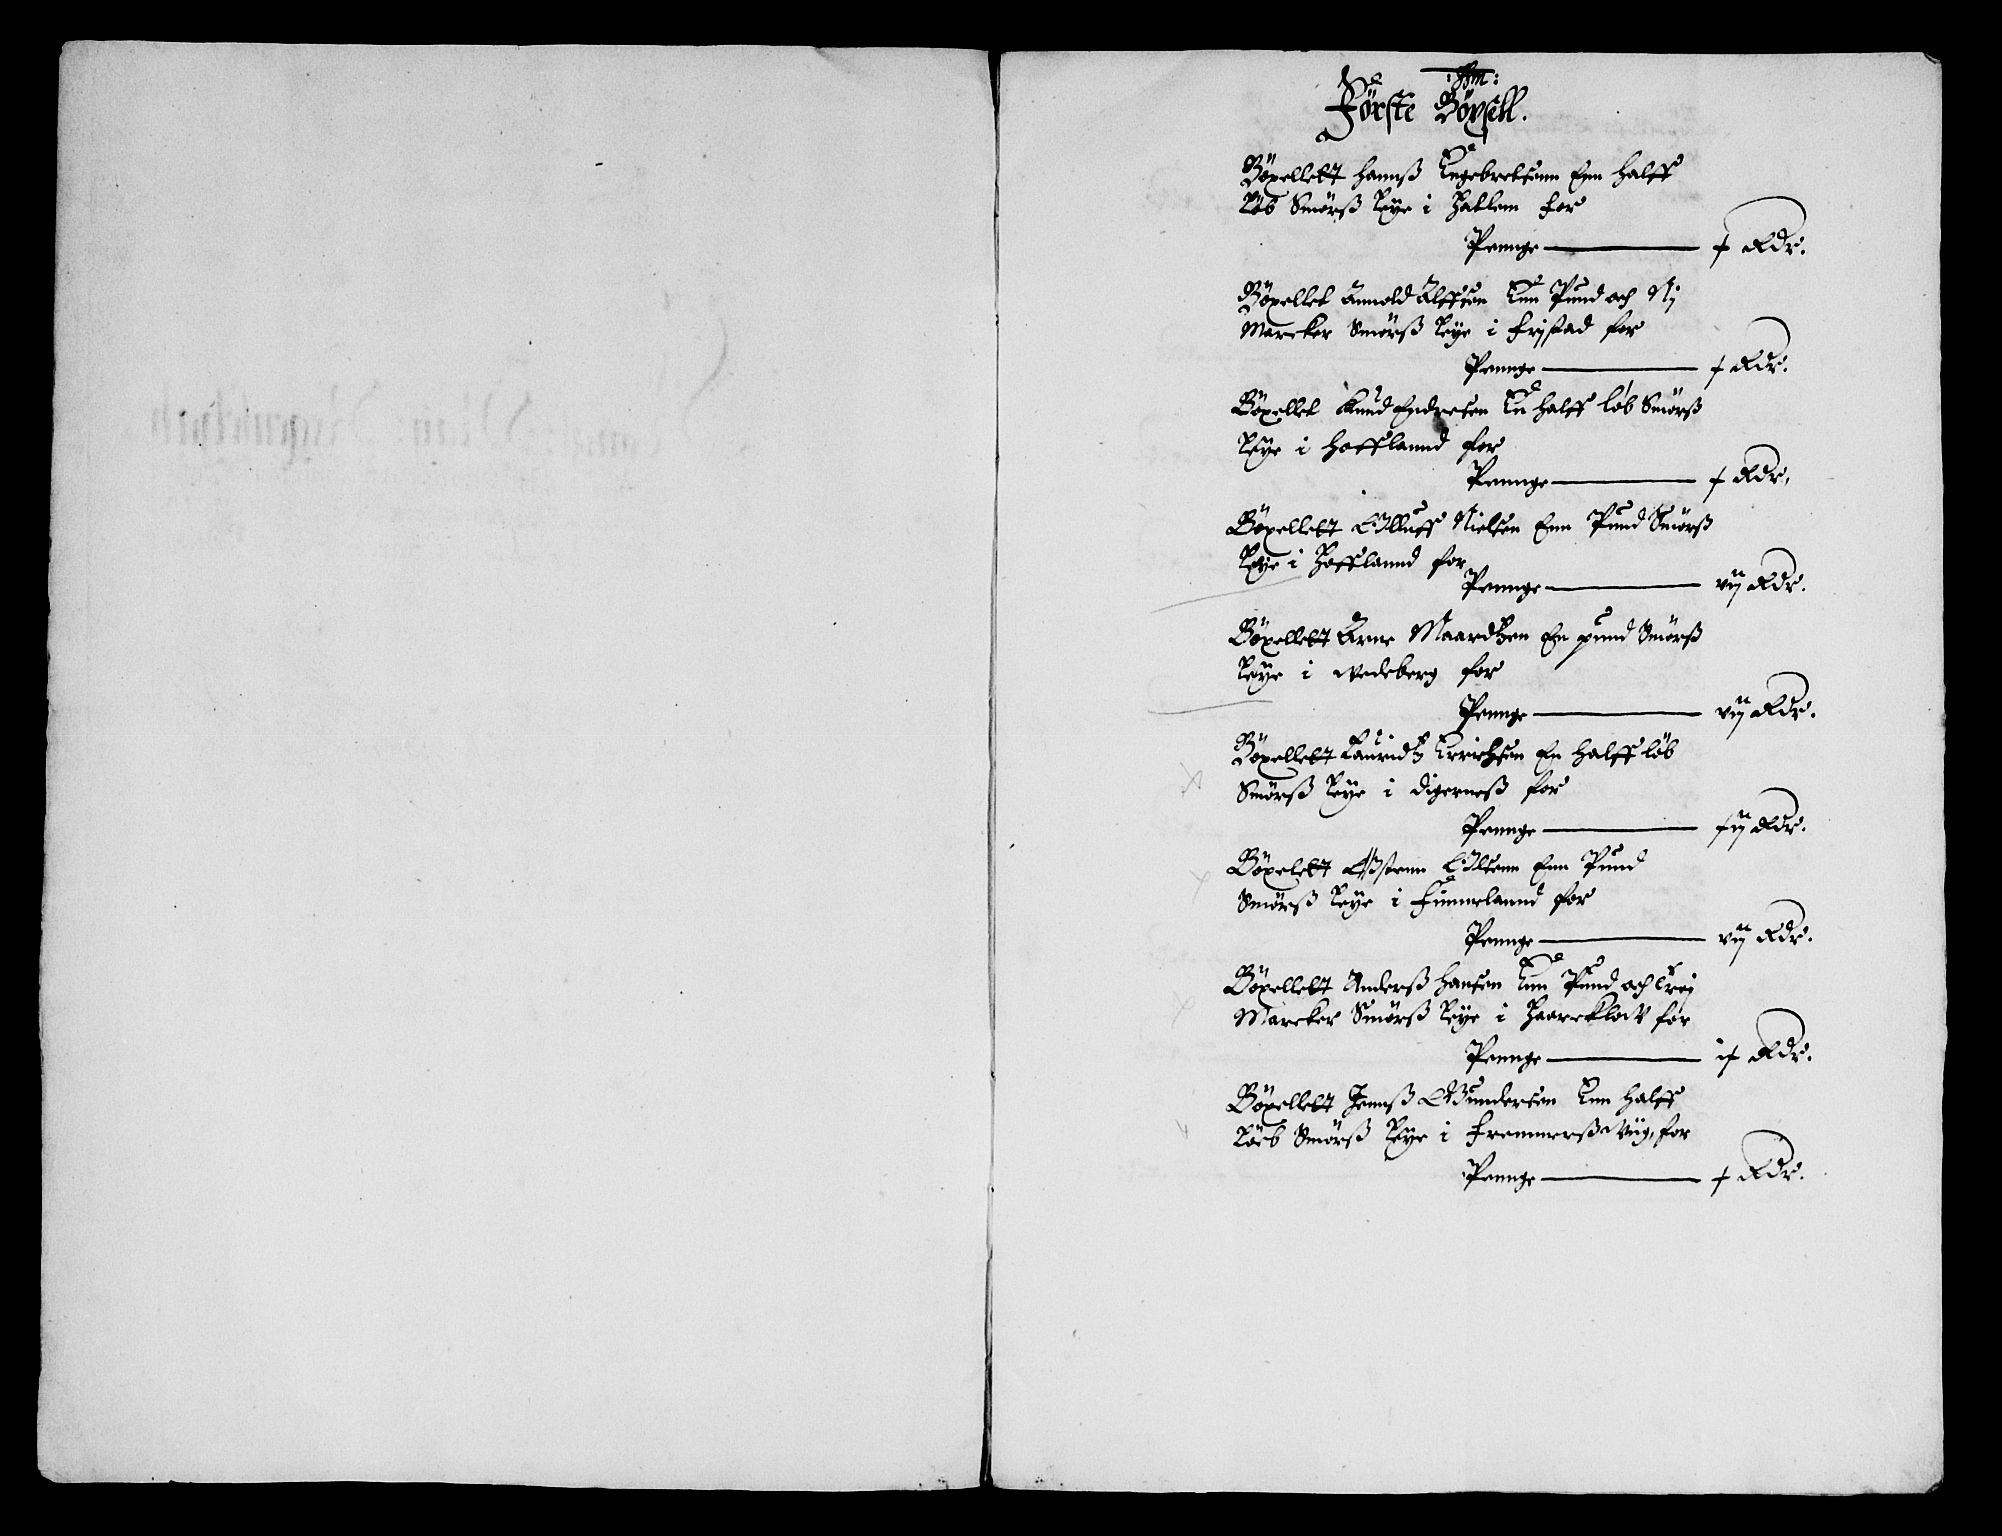 Første Böysell.
Böxellett Hannß Engebretsønn Enn halff
Löb Smörß Leye i Hatlem for
Pennge — x Rdr.
Böxellet Annold Alffsen Enn Pund och Nj
Marcker Smörß Leye i Frystad for
Pennge — x Rdr.
Böxellet Knud Endresen En halff löb Smörß
Leye i Hofflannd for
Pennge — x Rdr.
Böxellett Olluff Nielsen Enn Pund Smörß
Leye i Hofflannd for
Pennge — vij Rdr.
Böxellett Arne Maardtzen En pund Smörß
Leye i Vedeberg for
Pennge — vij Rdr.
Böxellett Lauridtz Erichsen En halff löb
Smörß Leye i Digerneß for
Pennge — xij Rdr.
Böxelett Østenn Olsenn Enn Pund
Smörß Leye i Finnelannd for
Pennge — vij Rdr.
Böxellett Anderß Hansen Enn Pund och trej
Marcker Smörß Leye i for
Pennge — ix Rdr.
Böxellett Jennß Gundersen Enn halff
Löeb Smörß Leye i Fremmerßviig, for
Pennge — x Rdr.